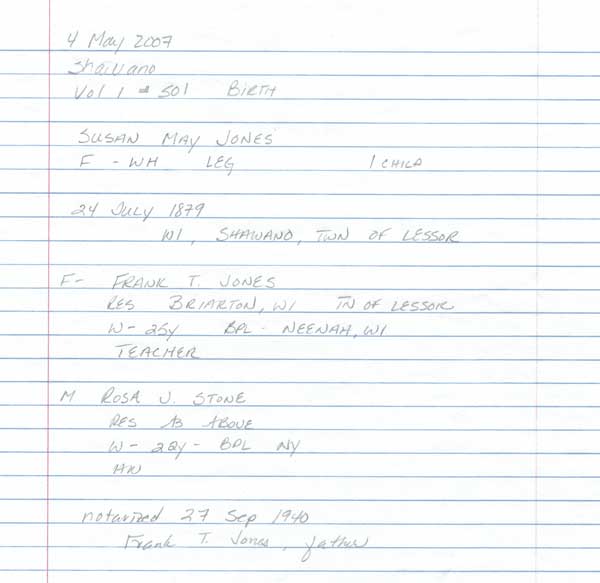 4 May 2007
Shawano
Vol 1 # 501 BIRTH
SUSAN MAY JONES
F - WH LEG 1 CHILD
24 July 1879
WI, SHAWANO, TWN OF LESSOR
F- FRANK T. JONES
RES BRIARTON, WI TN OF LESSOR
W - 25y BPL - NEENAH, WI
TEACHER
M ROSA J. STONE
RES AS ABOVE
W - 22y - BPL NY
HW
notarized 27 Sep 1940
Frank T. Jones, father